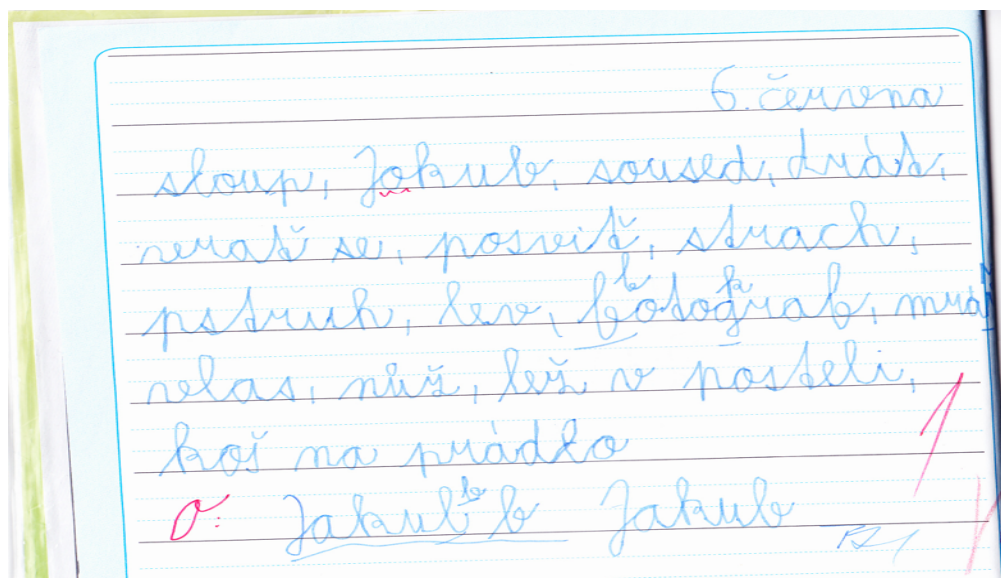 6. června
sloup, Jakub, soused, drát,
vrať se, posviť, strach,
pstruh, lev, fotograf, mráz
vlas, nůž, lež v posteli,
koš na prádlo
1
O: Jakub b Jakub